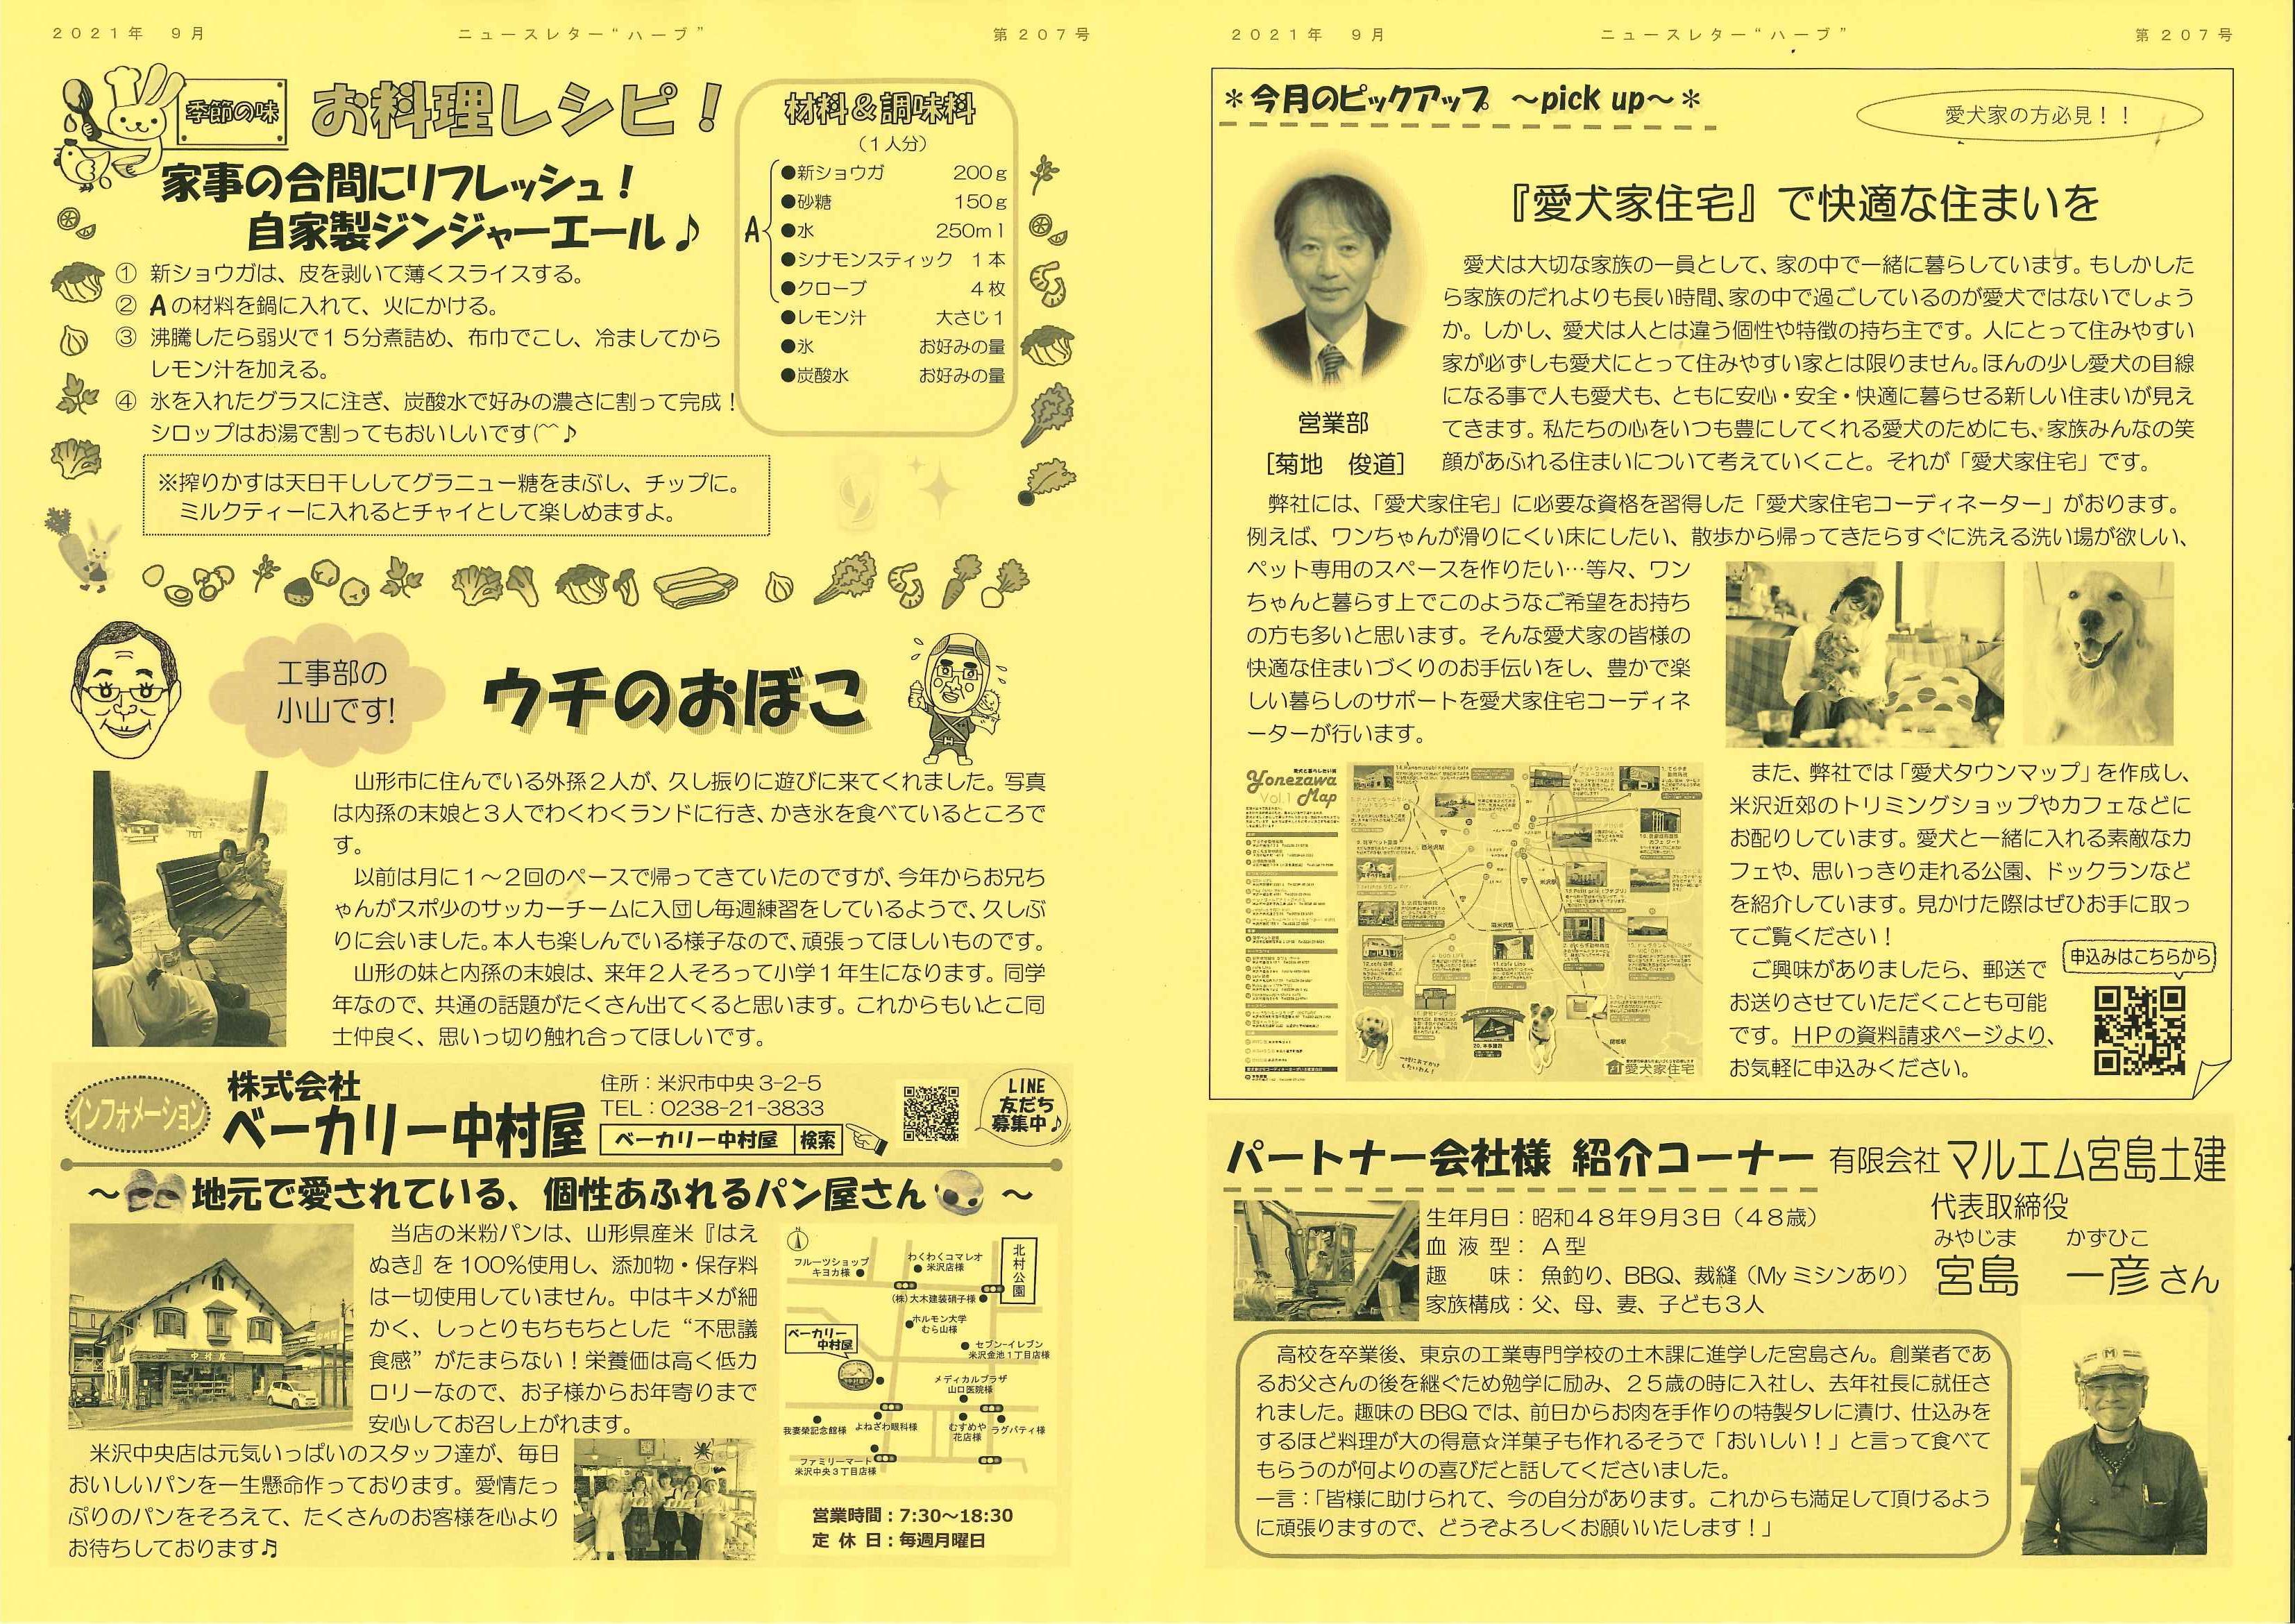 2021年　9月
ニュースレター“ハーブ”
第207号
季節の味
お料理レシピ！
家事の合間にリフレッシュ！
自家製ジンジャーエール♪
① 新ショウガは、皮を剥いて薄くスライスする。
② Aの材料を鍋に入れて、火にかける。
③ 沸騰したら弱火で１５分煮詰め、布巾でこし、冷ましてから
レモン汁を加える。
④ 氷を入れたグラスに注ぎ、炭酸水で好みの濃さに割って完成！
シロップはお湯で割ってもおいしいです(^^♪
※搾りかすは天日干ししてグラニュー糖をまぶし、チップに。
ミルクティーに入れるとチャイとして楽しめますよ。
材料＆調味料
（1人分）
A
●新ショウガ　200g
●砂糖　150g
●水　250ml
●シナモンスティック　1本
●クローブ　4枚
●レモン汁　大さじ1
●氷　お好みの量
●炭酸水　お好みの量
工事部の
小山です!
ウチのおぼこ
山形市に住んでいる外孫２人が、久し振りに遊びに来てくれました。写真
は内孫の末娘と３人でわくわくランドに行き、かき氷を食べているところで
す。
以前は月に１～２回のペースで帰ってきていたのですが、今年からお兄ち
ゃんがスポ少のサッカーチームに入団し毎週練習をしているようで、久しぶ
りに会いました。本人も楽しんでいる様子なので、頑張ってほしいものです。
山形の妹と内孫の末娘は、来年２人そろって小学１年生になります。同学
年なので、共通の話題がたくさん出てくると思います。これからもいとこ同
士仲良く、思いっ切り触れ合ってほしいです。
インフォメーション
株式会社
ベーカリー中村屋
住所：米沢市中央3-2-5
TEL：0238-21-3833
ベーカリー中村屋　検索
LINE
友だち
募集中♪
～地元で愛されている、個性あふれるパン屋さん～
当店の米粉パンは、山形県産米『はえ
ぬき』を100%使用し、添加物・保存料
は一切使用していません。中はキメが細
かく、しっとりもちもちとした“不思議
食感”がたまらない！栄養価は高く低カ
ロリーなので、お子様からお年寄りまで
安心してお召し上がれます。
米沢中央店は元気いっぱいのスタッフ達が、毎日
おいしいパンを一生懸命作っております。愛情たっ
ぷりのパンをそろえて、たくさんのお客様を心より
お待ちしております♬
N
フルーツショップ
キヨカ様
わくわくコマレオ
米沢店様
北村公園
(株)大木建装硝子様
ホルモン大学
むら山様
ベーカリー
中村屋
セブン-イレブン
米沢金池1丁目店様
メディカルプラザ
山口医院様
我妻榮記念館様
よねざわ眼科様
むすめや
花店様
ラグパティ様
ファミリーマート
米沢中央3丁目店様
営業時間：7:30～18:30
定 休 日：毎週月曜日
2021年　9月
ニュースレター“ハーブ”
第207号
＊今月のピックアップ ～pick up～＊
愛犬家の方必見！！
『愛犬家住宅』で快適な住まいを
営業部
［菊地　俊道］
愛犬は大切な家族の一員として、家の中で一緒に暮らしています。もしかした
ら家族のだれよりも長い時間、家の中で過ごしているのが愛犬ではないでしょう
か。しかし、愛犬は人とは違う個性や特徴の持ち主です。人にとって住みやすい
家が必ずしも愛犬にとって住みやすい家とは限りません。ほんの少し愛犬の目線
になる事で人も愛犬も、ともに安心・安全・快適に暮らせる新しい住まいが見え
てきます。私たちの心をいつも豊にしてくれる愛犬のためにも、家族みんなの笑
顔があふれる住まいについて考えていくこと。それが「愛犬家住宅」です。
弊社には、「愛犬家住宅」に必要な資格を習得した「愛犬家住宅コーディネーター」がおります。
例えば、ワンちゃんが滑りにくい床にしたい、散歩から帰ってきたらすぐに洗える洗い場が欲しい、
ペット専用のスペースを作りたい…等々、ワン
ちゃんと暮らす上でこのようなご希望をお持ち
の方も多いと思います。そんな愛犬家の皆様の
快適な住まいづくりのお手伝いをし、豊かで楽
しい暮らしのサポートを愛犬家住宅コーディネ
ーターが行います。
Yonezawa
Vol.1 Map
愛犬家住宅
また、弊社では「愛犬タウンマップ」を作成し、
米沢近郊のトリミングショップやカフェなどに
お配りしています。愛犬と一緒に入れる素敵なカ
フェや、思いっきり走れる公園、ドックランなど
を紹介しています。見かけた際はぜひお手に取っ
てご覧ください！
ご興味がありましたら、郵送で
お送りさせていただくことも可能
です。HPの資料請求ページより、
お気軽に申込みください。
申込みはこちらから
パートナー会社様 紹介コーナー
有限会社 マルエム宮島土建
代表取締役
みやじま　かずひこ
宮島　一彦さん
生年月日：昭和４８年９月３日（４８歳）
血 液 型： A型
趣　　味： 魚釣り、BBQ、裁縫（Myミシンあり）
家族構成：父、母、妻、子ども３人
高校を卒業後、東京の工業専門学校の土木課に進学した宮島さん。創業者であ
るお父さんの後を継ぐため勉学に励み、２５歳の時に入社し、去年社長に就任さ
れました。趣味のBBQでは、前日からお肉を手作りの特製タレに漬け、仕込みを
するほど料理が大の得意☆洋菓子も作れるそうで「おいしい！」と言って食べて
もらうのが何よりの喜びだと話してくださいました。
一言：「皆様に助けられて、今の自分があります。これからも満足して頂けるよう
に頑張りますので、どうぞよろしくお願いいたします！」